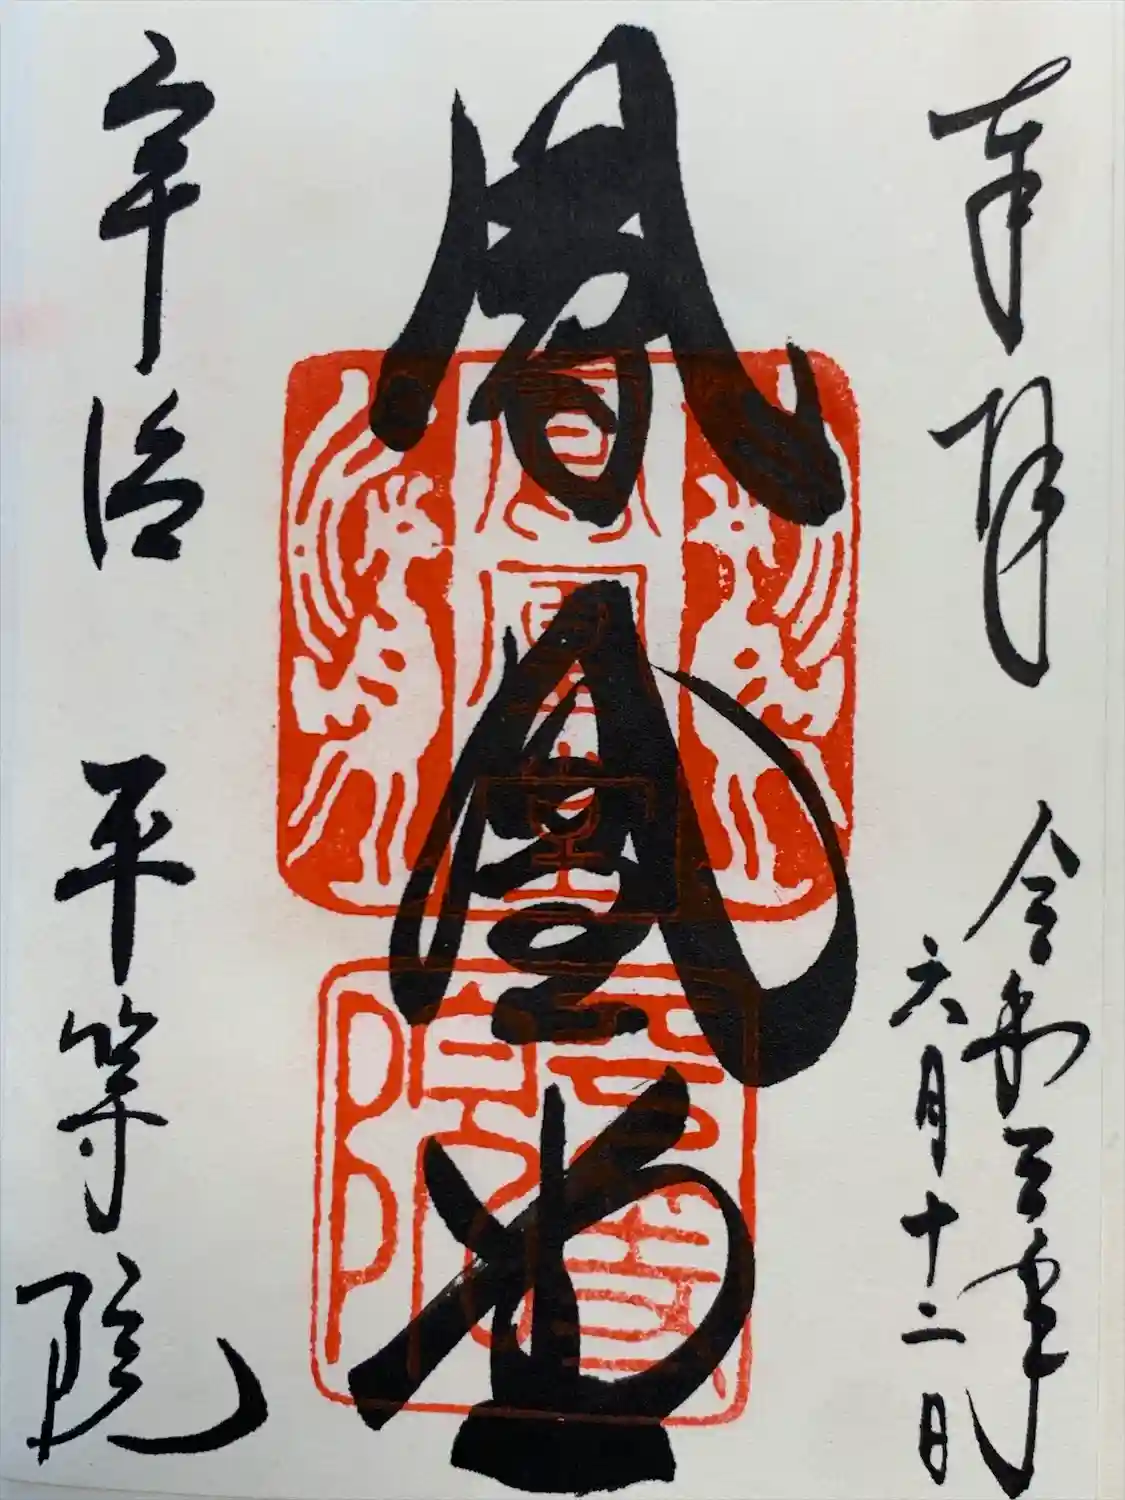 奉拝 令和三年
六月十二日
鳳凰堂
宇治 平等院